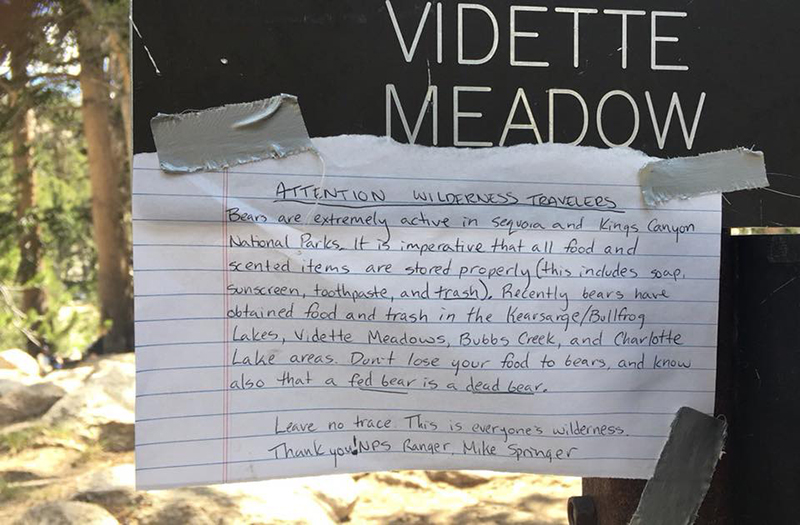 VIDETTE
MEADOW
ATTENTION WILDERNESS TRAVELERS
Bears are extremely active in Sequoia and Kings Canyon
National Parks. It is imperative that all food and
scented items are stored properly (this includes soap,
sunscreen, toothpaste, and trash). Recently bears have
obtained food and trash in the Kearsarge/Bullfrog
Lakes, Vidette Meadows, Bubbs Creek, and Charlotte
Lake areas. Don't lose your food to bears, and know
also that a fed bear is a dead bear.
Leave no trace. This is everyone's wilderness.
Thank you! NPS Ranger, Mike Springer